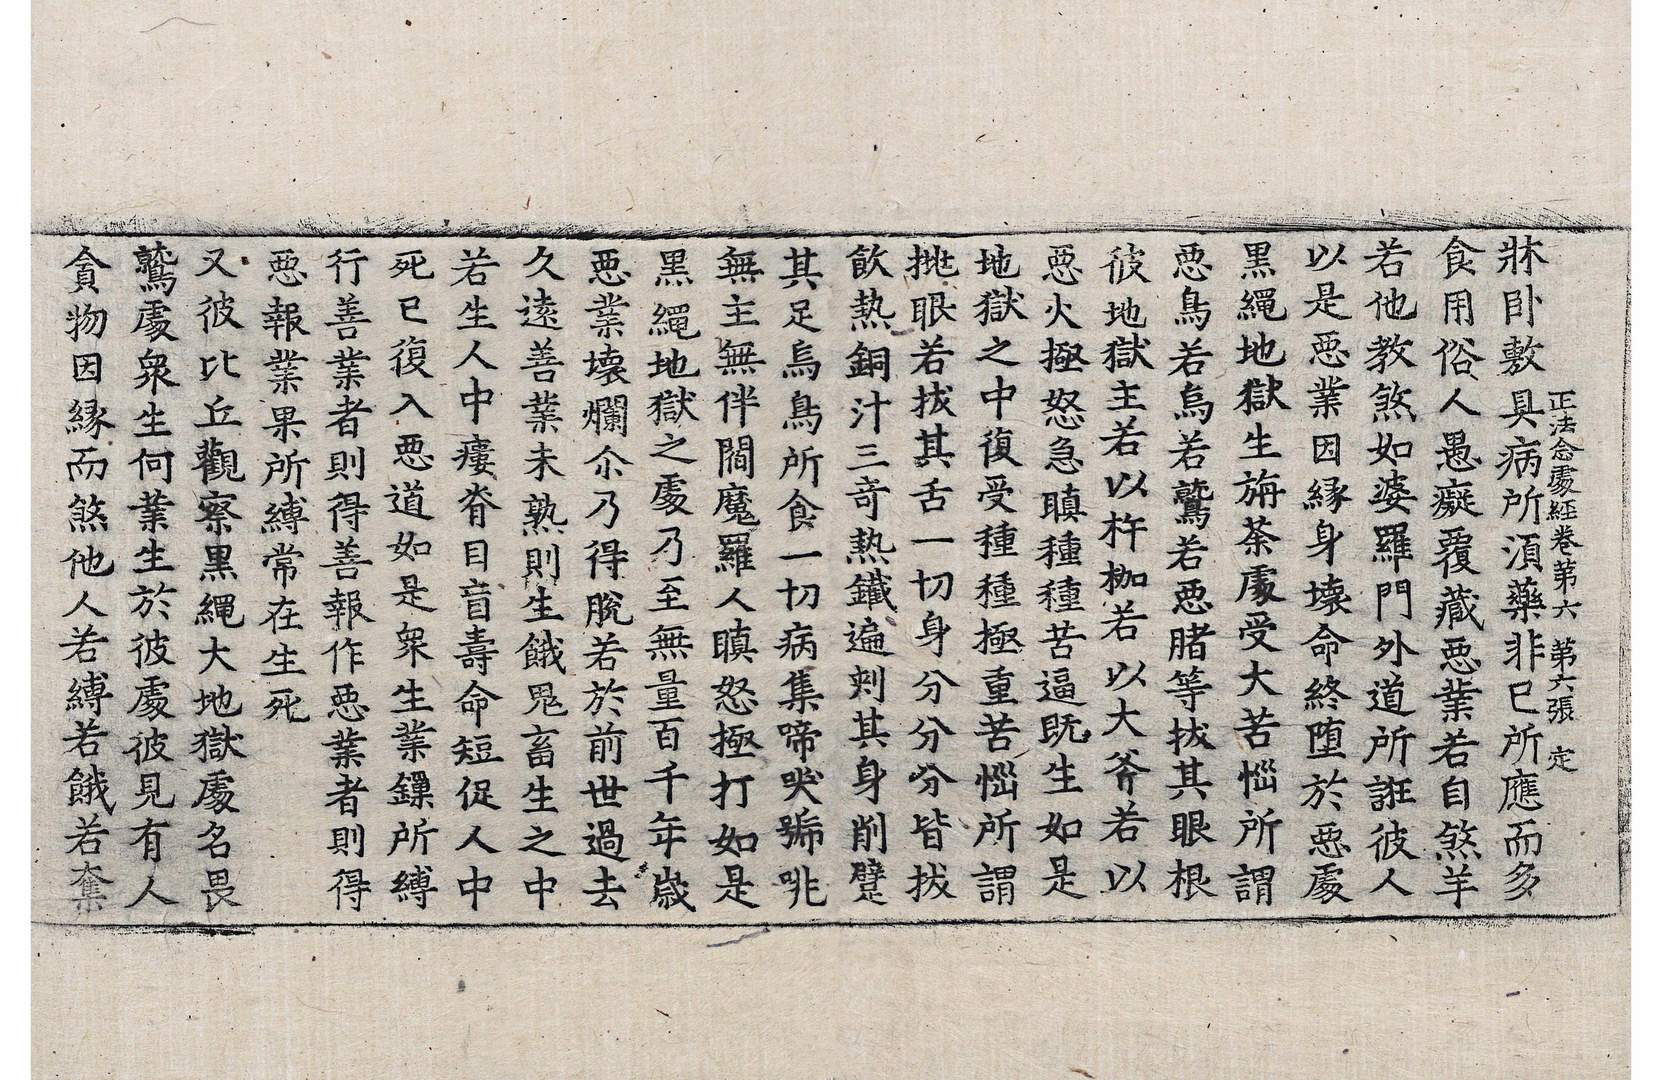 正法念處經卷第六　第六張　定
牀卧敷具病所湏藥非已所應而多
食用俗人愚癡覆蔵惡業若自煞羊
若他教煞如婆羅門外道所誑彼人
以是惡業因緣身壞命終墮於惡處
黒縄地獄生旃茶處受大苦惱所謂
惡鳥若烏若鷲若惡腤等拔其眼根
彼地獄主若以杵枷若以大斧若以
惡火極怒急瞋種種苦逼旣生如是
地獄之中復受種種極重苦惱所謂
挑眼若拔其舌一切身分分分皆拔
飲熱銅汁三奇熱鐵遍刾其身削躄
其足烏鳥所食一切病集啼哭號咷
無主無伴閻魔羅人瞋怒極打如是
黒縄地獄之處乃至無量百千年歳
惡業壞爛尒乃得脫若於前世過去
久遠善業未熟則生餓鬼畜生之中
若生人中瘻脊目盲壽命短促人中
死已復入惡道如是衆生業鏁所縛
行善業者則得善報作惡業者則得
惡報業果所縛常在生死
又彼比丘觀察黒縄大地獄處名畏
鷲處衆生何業生於彼處彼見有人
貪物因緣而煞他人若縛若餓若奪